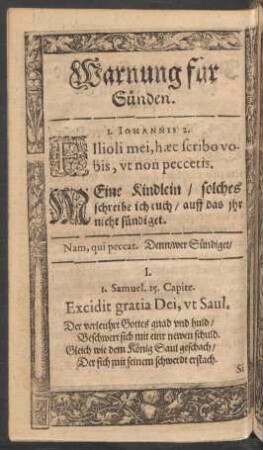 Warnung für
Sünden.
1. IOHANNIS 2.
FIlioli mei, hæc scribo vo-
bis, vt non peccetis.
MEine Kindlein / solches
schreibe ich euch / auff das jhr
nicht sündiget.
Nam, qui peccat. Denn / wer Sündiget /
I.
1. Samuel. 15. Capite.
Excidit gratia Dei, vt Saul.
Der verleuhrt Gottes gnad vnd huld /
Beschwert sich mit einr newen schuld.
Gleich wie dem König Saul geschach /
Der sich mit seinem schwerdt erstach.
Si